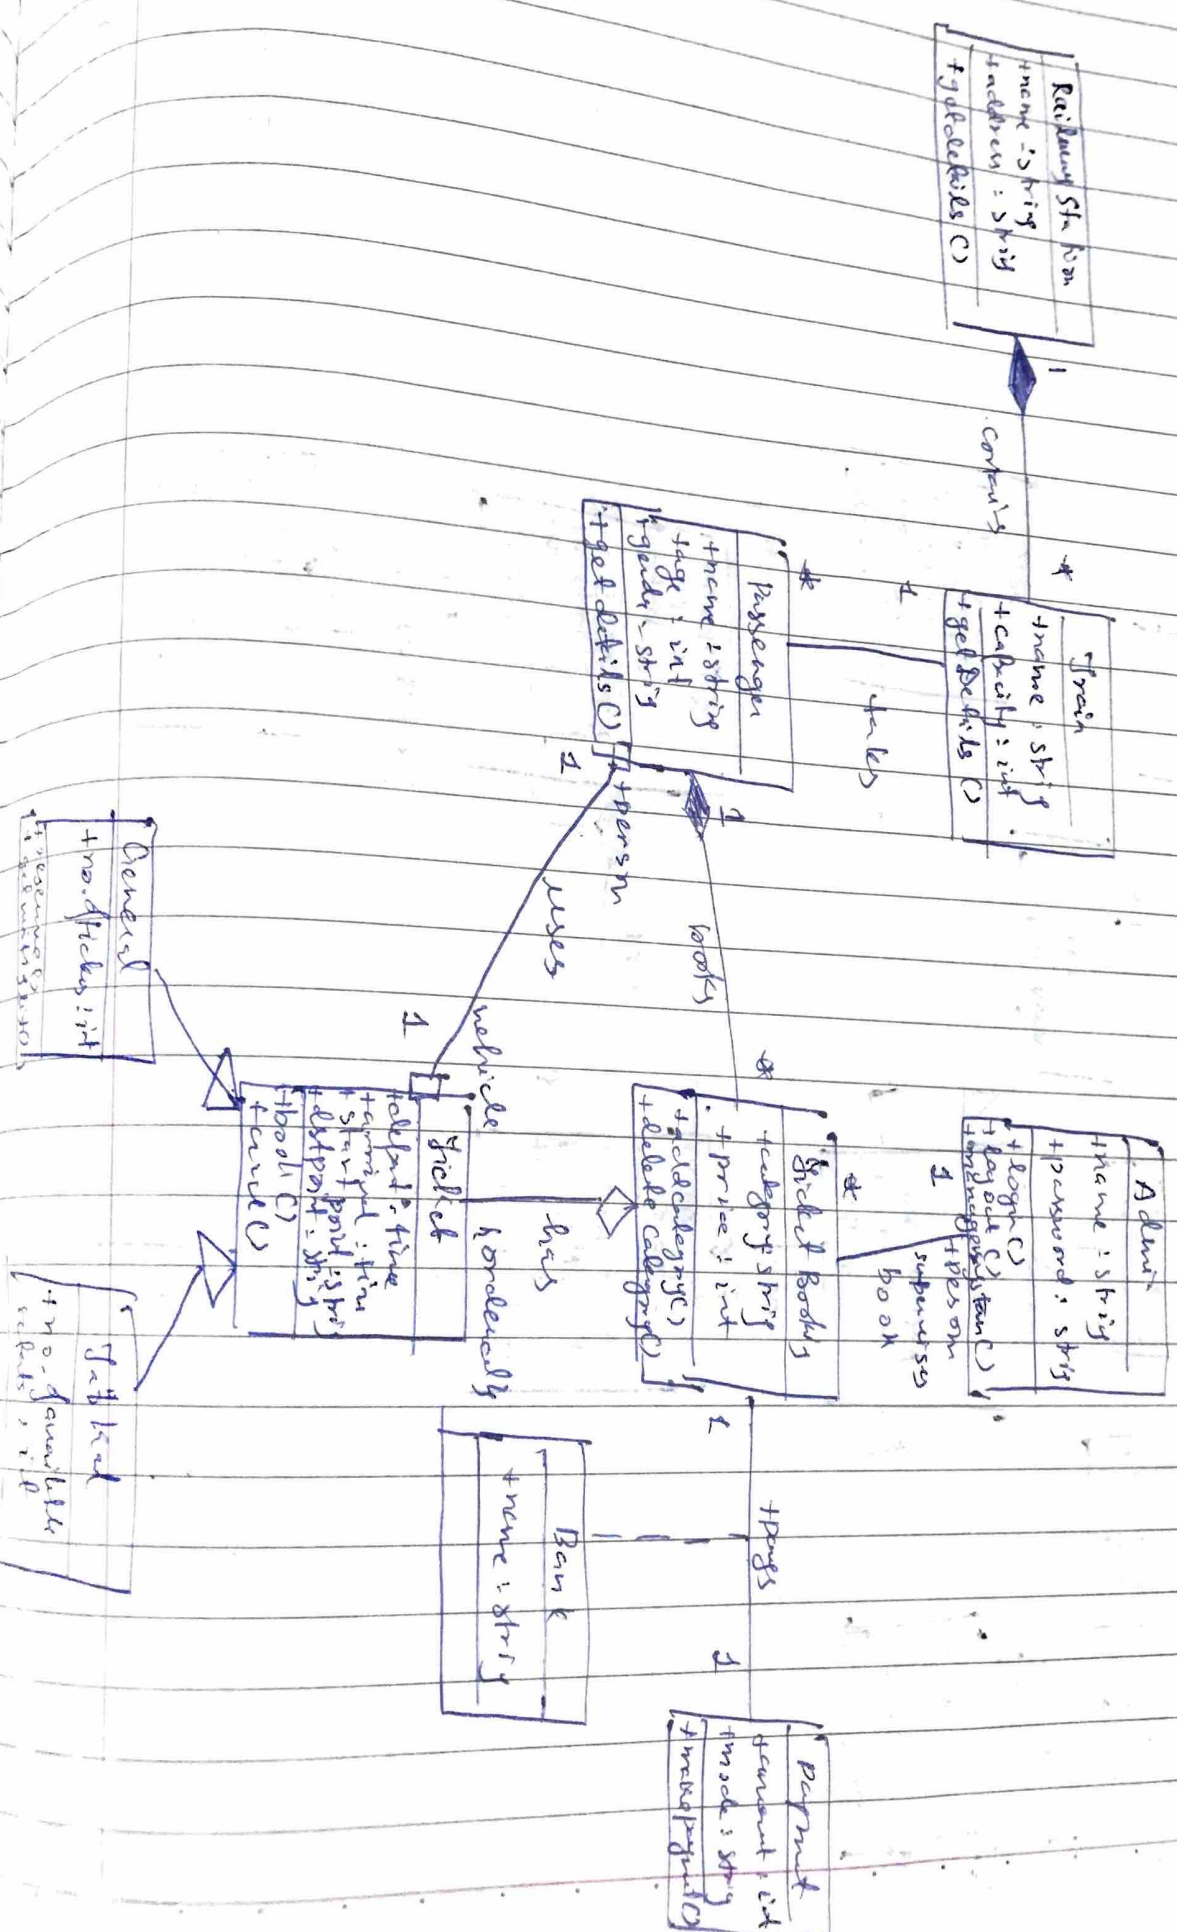 Railway Station
+name : string
+address : strig
+getdetails ()
1
contais
*
Train
+name : strig
+capacity : int
+getDetails ()
1
takes
*
Passenger
+name : string
+age : int
+gendr : strig
+getdetails ()
1
books
*
1
+person
uses
vehicle
1
Admi
+name : string
+password : strig
+login ()
+logout ()
1
+person
supervises
book
*
Ticket Bookig
+category : strig
+price : int
+addcategory()
+delete Category()
has
Ticket
+depart : time
+arrival : time
+start point : strig
+dstpoint : strig
+book ()
+cancel ()
General
+no. of tickets : int
Tatkal
+no. of available
: int
1
+pays
1
Bank
+name : strig
Paymnt
+amount : int
+mode : strig
+makepaymt()